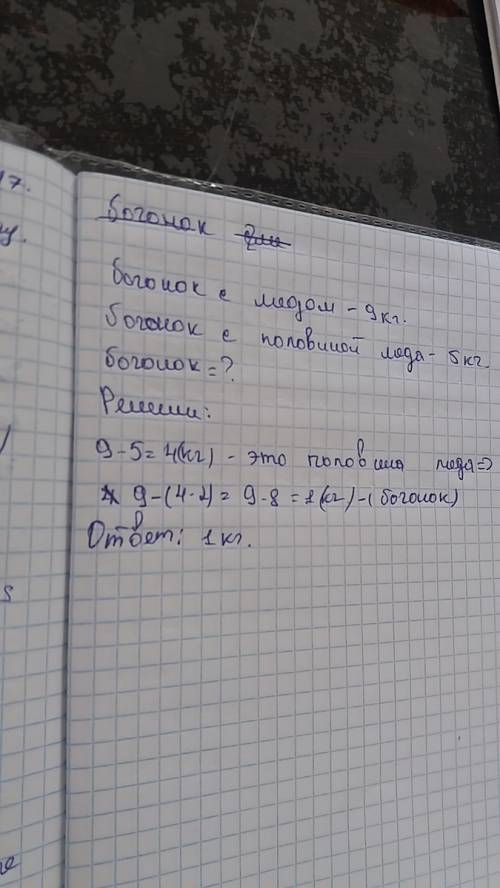 17.
Богонок
Богонок с медом - 9кг.
Богонок с половиной меда - 5кг
Богонок = ?
Решении:
9-5=4(кг) - это половина меда=>
9-(4·2)=9-8=1(кг)-(богонок)
Ответ: 1кг.